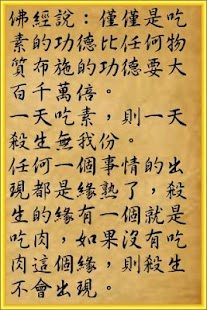 佛經說：僅僅是吃
素的功德比任何物
質布施的功德要大
百千萬倍。
一天吃素，則一天
殺生無我份。
任何一個事情的出
現都是緣熟了，殺
生的緣有一個就是
吃肉，如果沒有吃
肉這個緣，則殺生
不會出現。